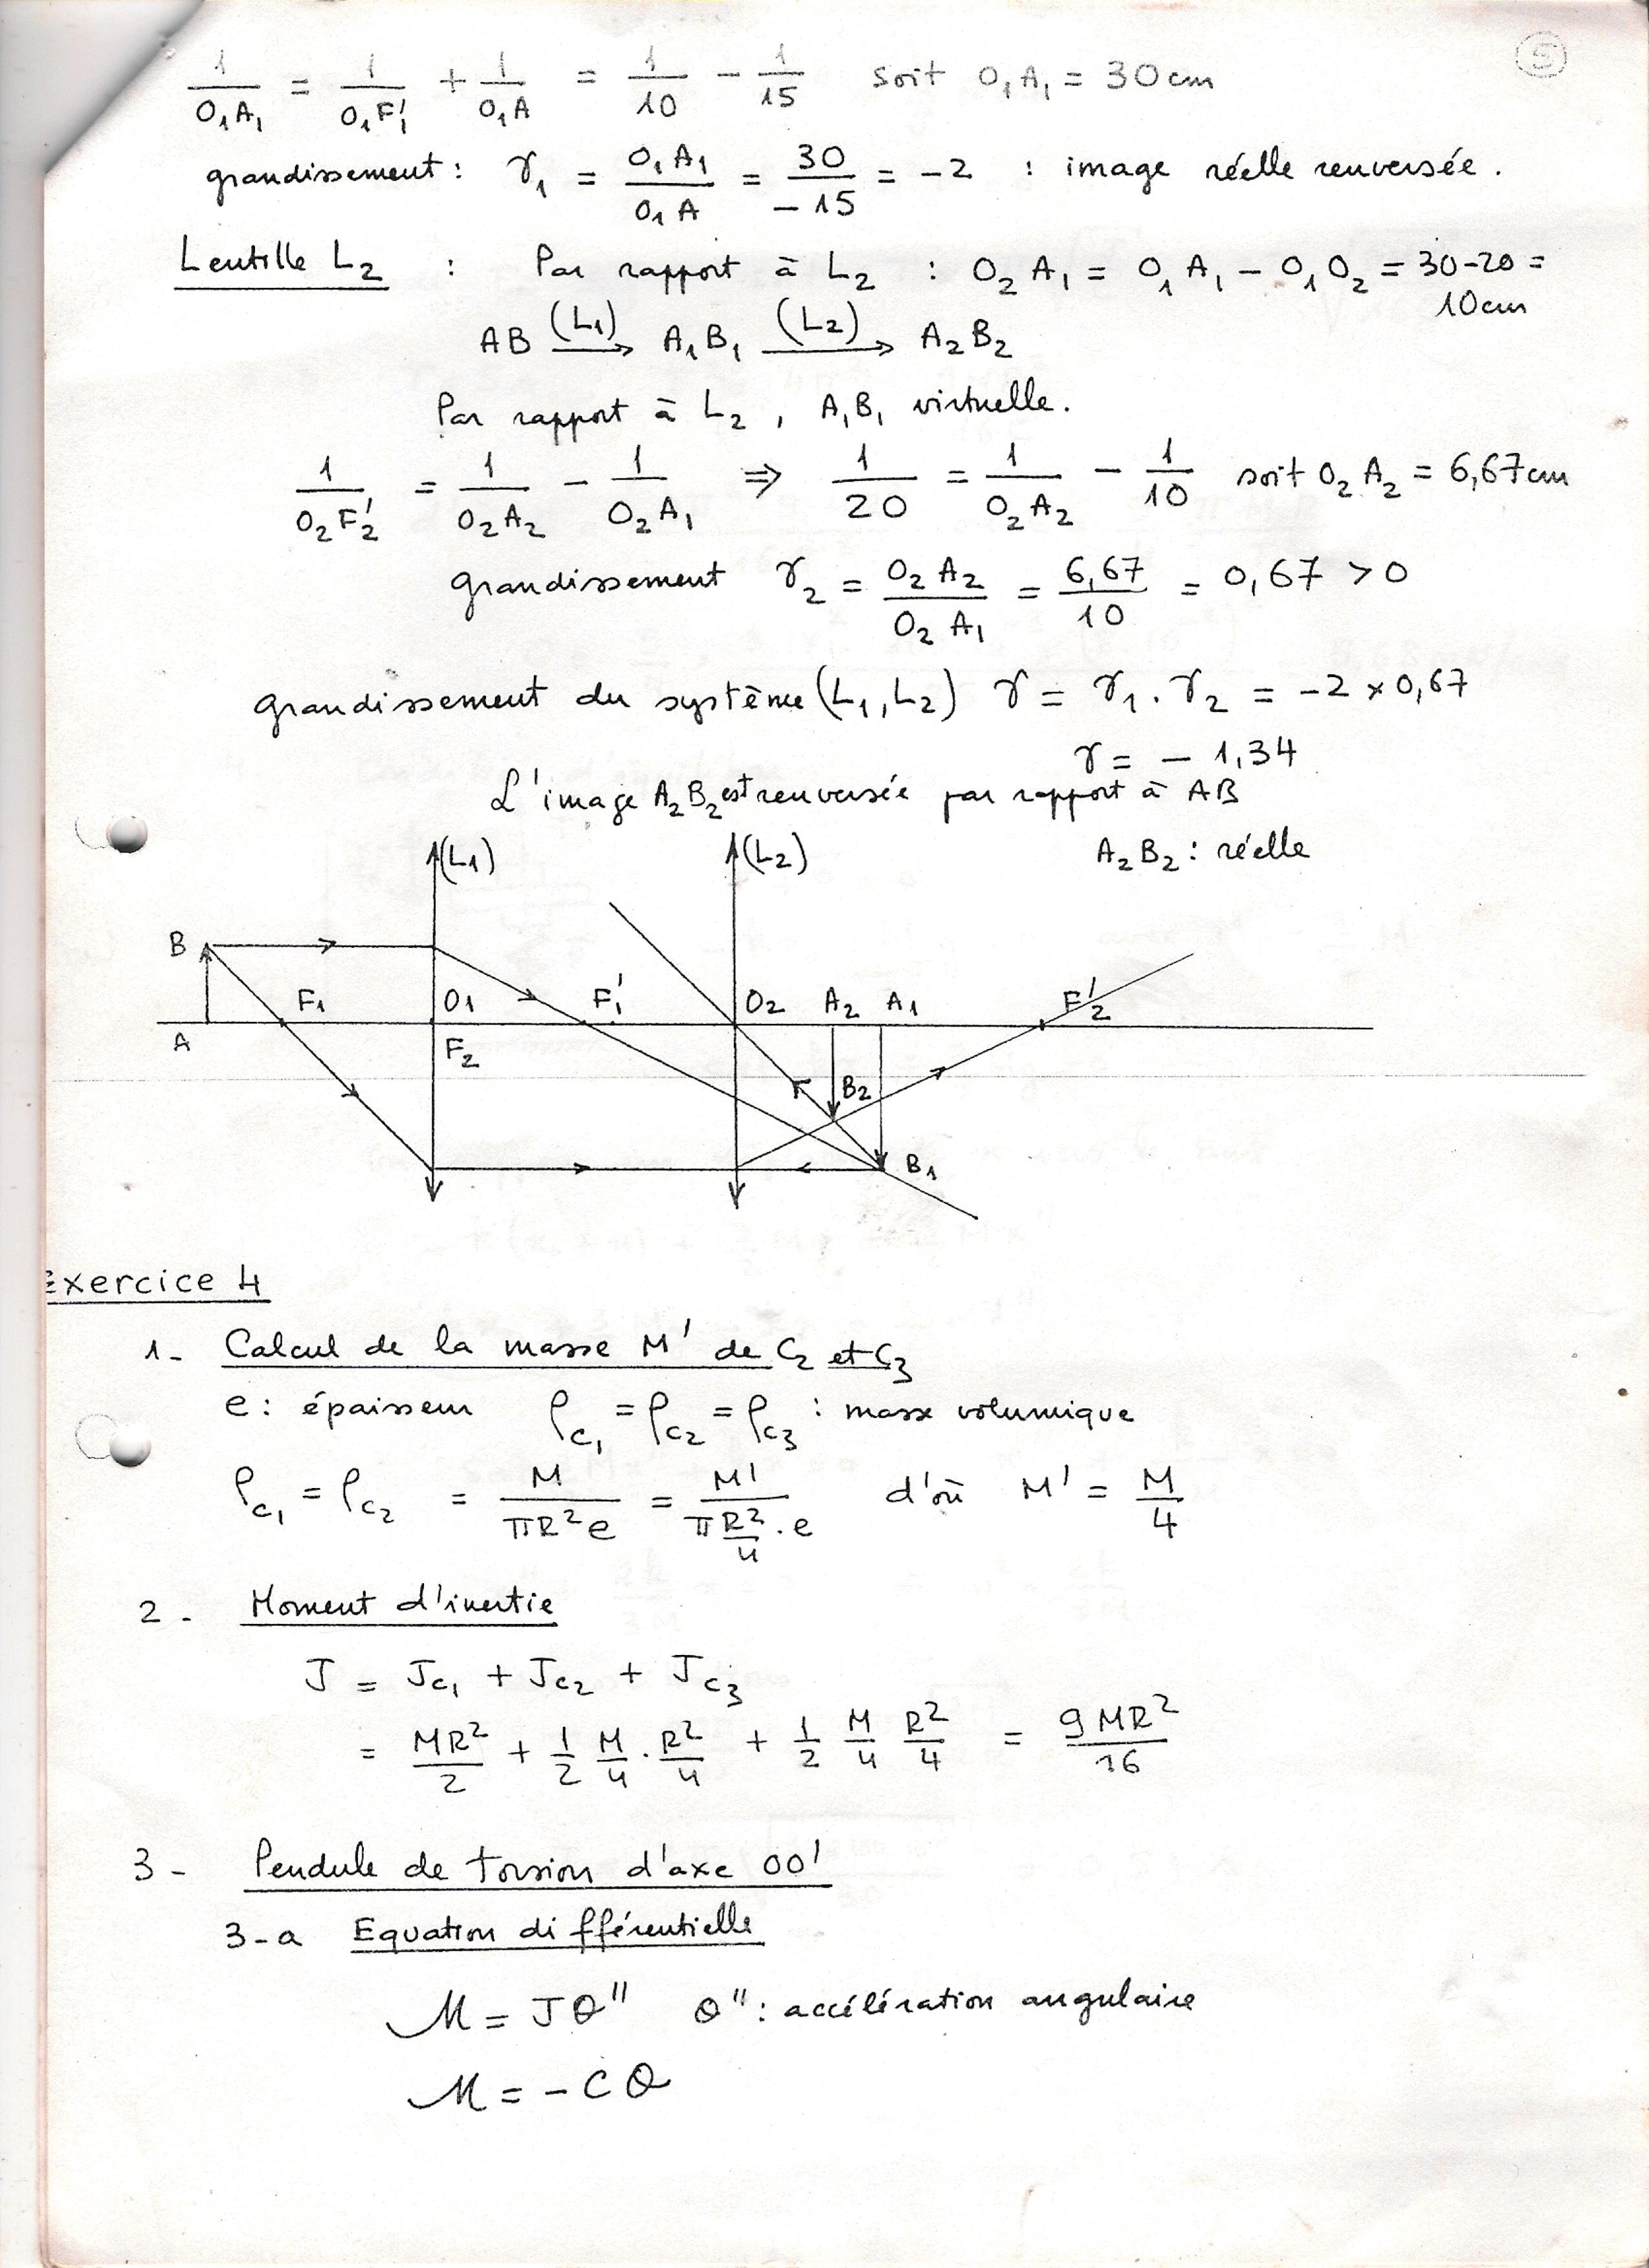 5
1/O₁A₁ = 1/O₁F'₁ + 1/O₁A = 1/10 - 1/15 soit O₁A₁ = 30cm
grandissement : γ₁ = O₁A₁/O₁A = 30/-15 = -2 : image réelle renversée.
Lentille L₂ : Par rapport à L₂ : O₂A₁ = O₁A₁ - O₁O₂ = 30-20 =
10cm
AB (L₁)→ A₁B₁ (L₂)→ A₂B₂
Par rapport à L₂, A₁B₁ virtuelle.
1/O₂F'₂ = 1/O₂A₂ - 1/O₂A₁ ⇒ 1/20 = 1/O₂A₂ - 1/10 soit O₂A₂ = 6,67cm
grandissement γ₂ = O₂A₂/O₂A₁ = 6,67/10 = 0,67 > 0
grandissement du système (L₁,L₂) γ = γ₁.γ₂ = -2 × 0,67
γ = - 1,34
L'image A₂B₂ est renversée par rapport à AB
A₂B₂ : réelle
(L₁) (L₂)
B
F₁ O₁ F'₁ O₂ A₂ A₁ F'₂
A F₂
B₂
B₁
Exercice 4
1- Calcul de la masse M' de C₂ et C₃
e : épaisseur ρc₁ = ρc₂ = ρc₃ : masse volumique
ρc₁ = ρc₂ = M/πR²e = M'/π(R²/4).e d'où M' = M/4
2- Moment d'inertie
J = Jc₁ + Jc₂ + Jc₃
= MR²/2 + 1/2 M/4 . R²/4 + 1/2 M/4 R²/4 = 9MR²/16
3- Pendule de torsion d'axe OO'
3-a Equation différentielle
ℳ = Jθ'' θ'' : accélération angulaire
ℳ = -Cθ